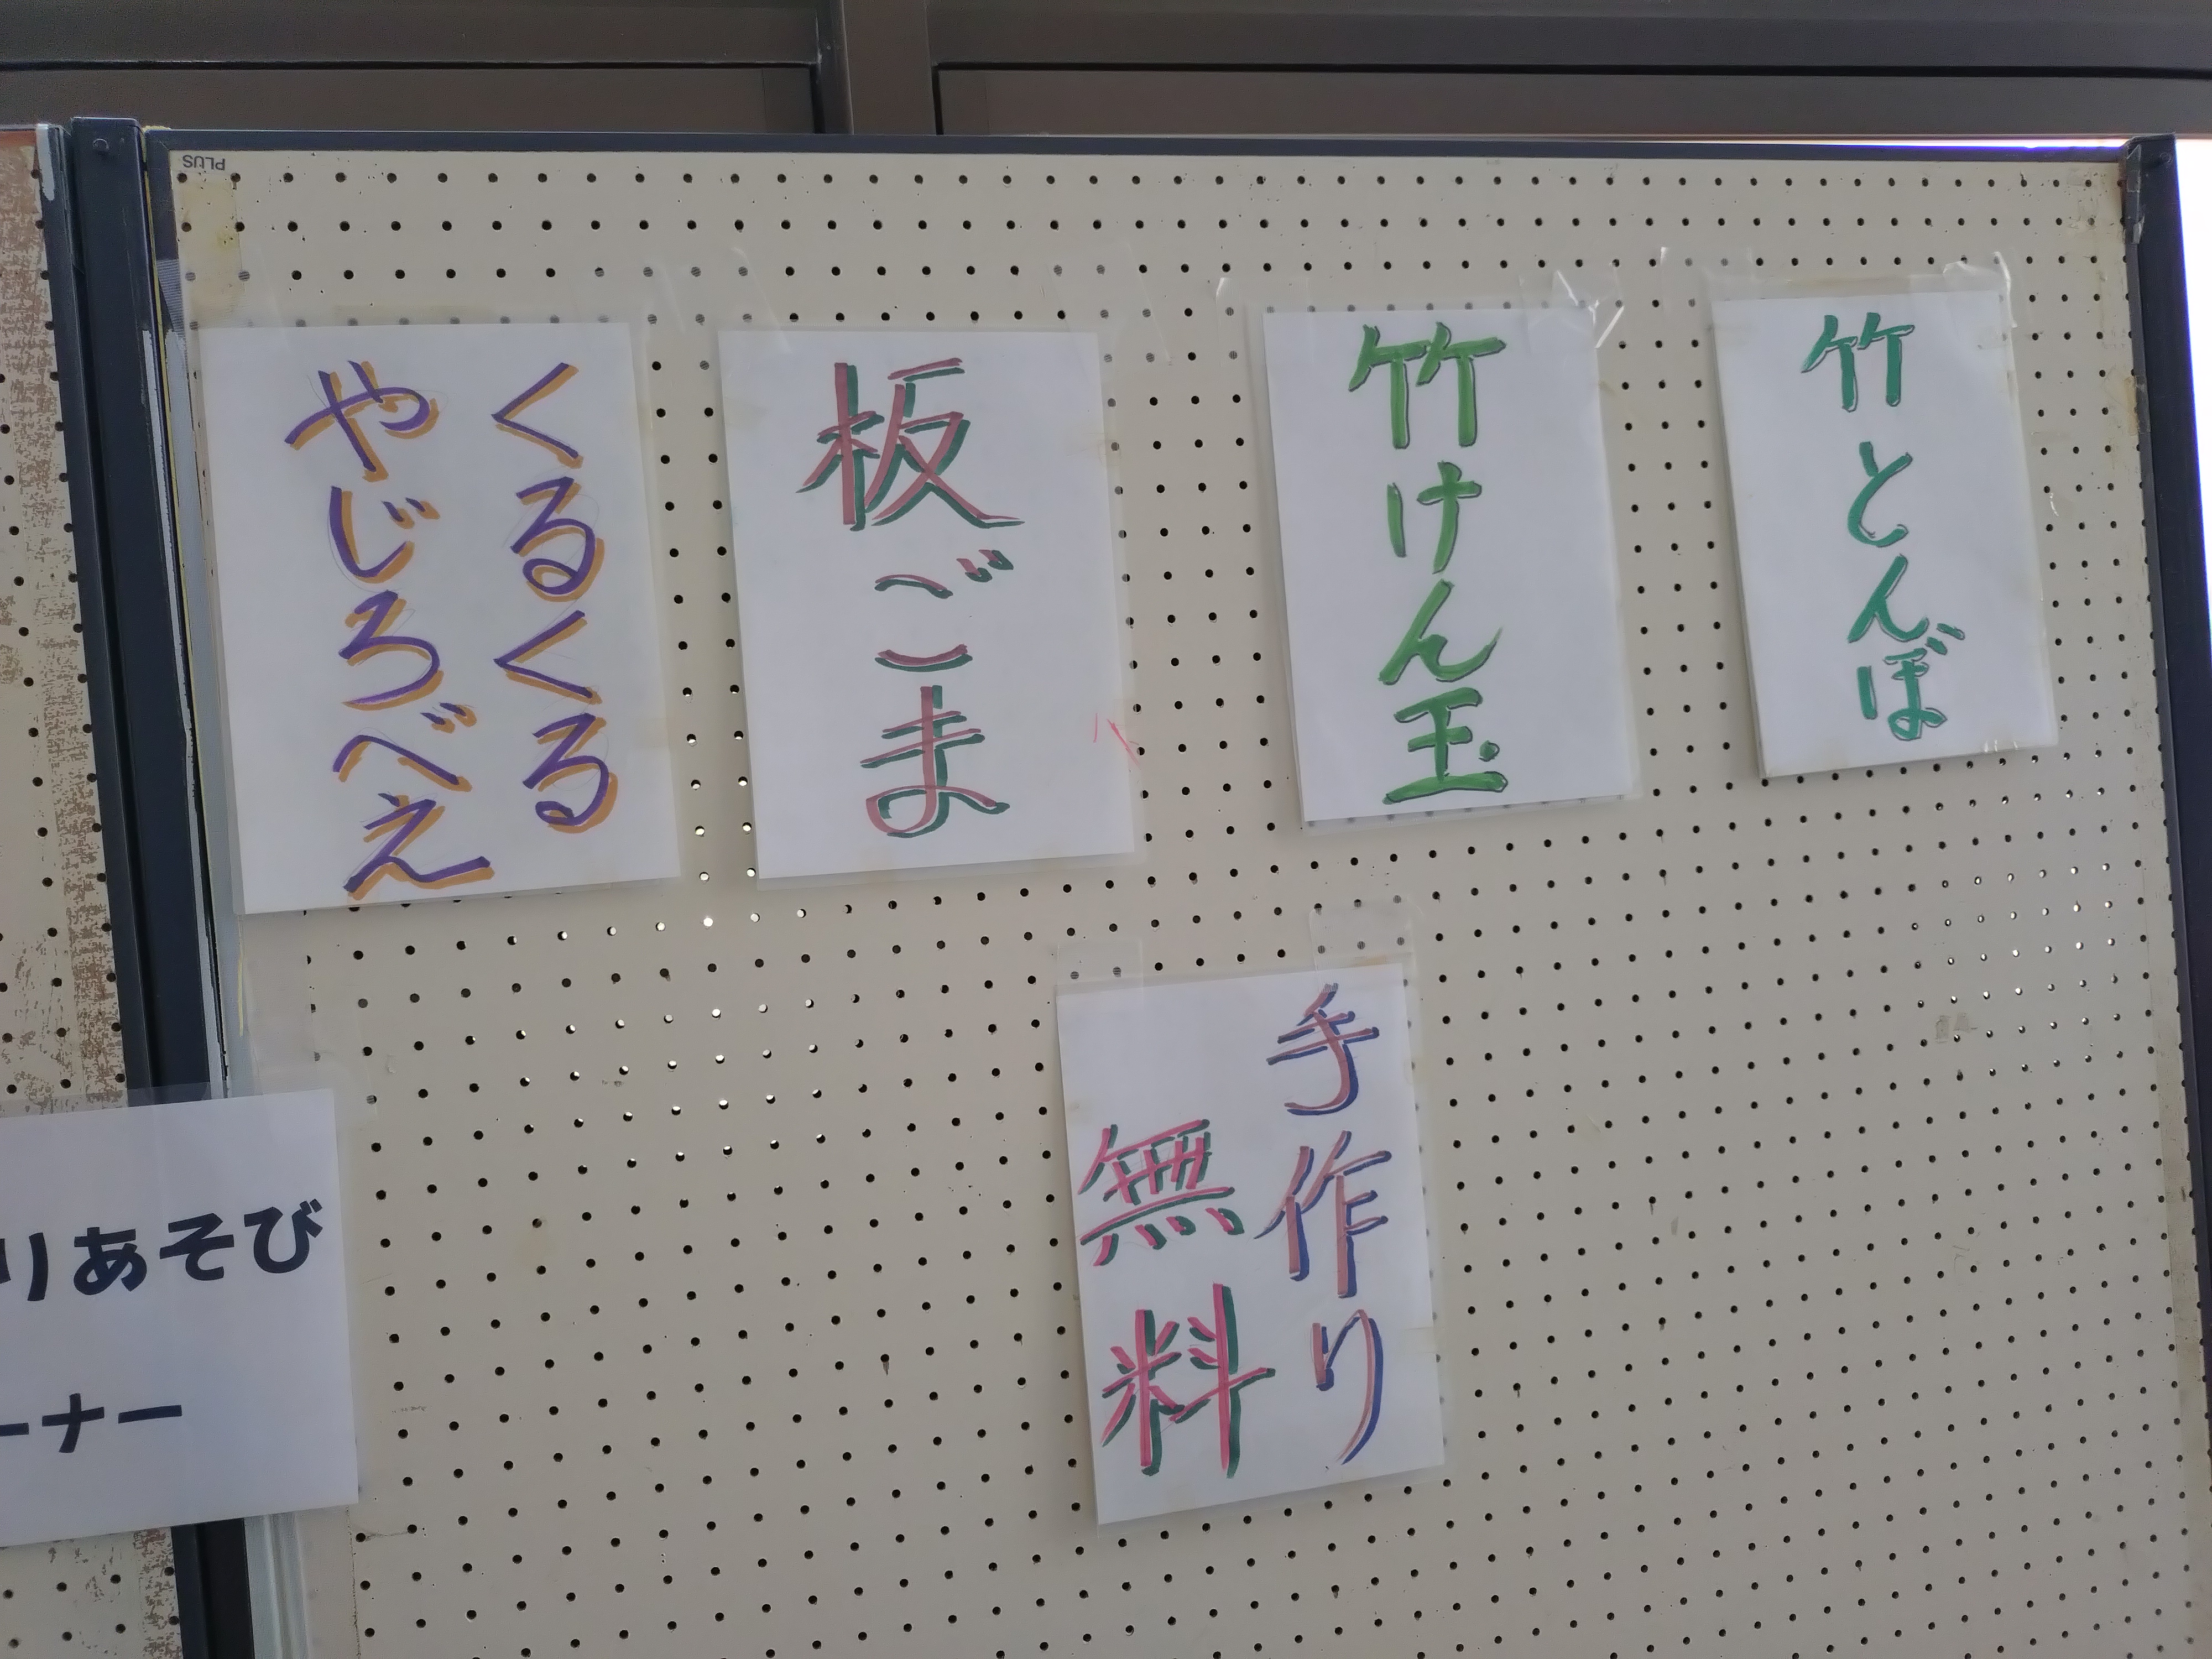 PLUS
竹とんぼ
竹けん玉
板ごま
くるくる
やじろべえ
手作り
無料
りあそび
ーナー